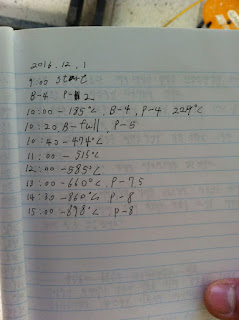 2016. 12. 1
9:00 start
B-4 P-2
10:00 - 185°C, B-4, P-4 229°C
10:20, B-full, P-5
10:40 - 474°C
11:00 - 515°C
12:00 - 585°C
13:00 - 660°C, P-7.5
14:30 - 860°C, P-8
15:00 - 898°C, P-8